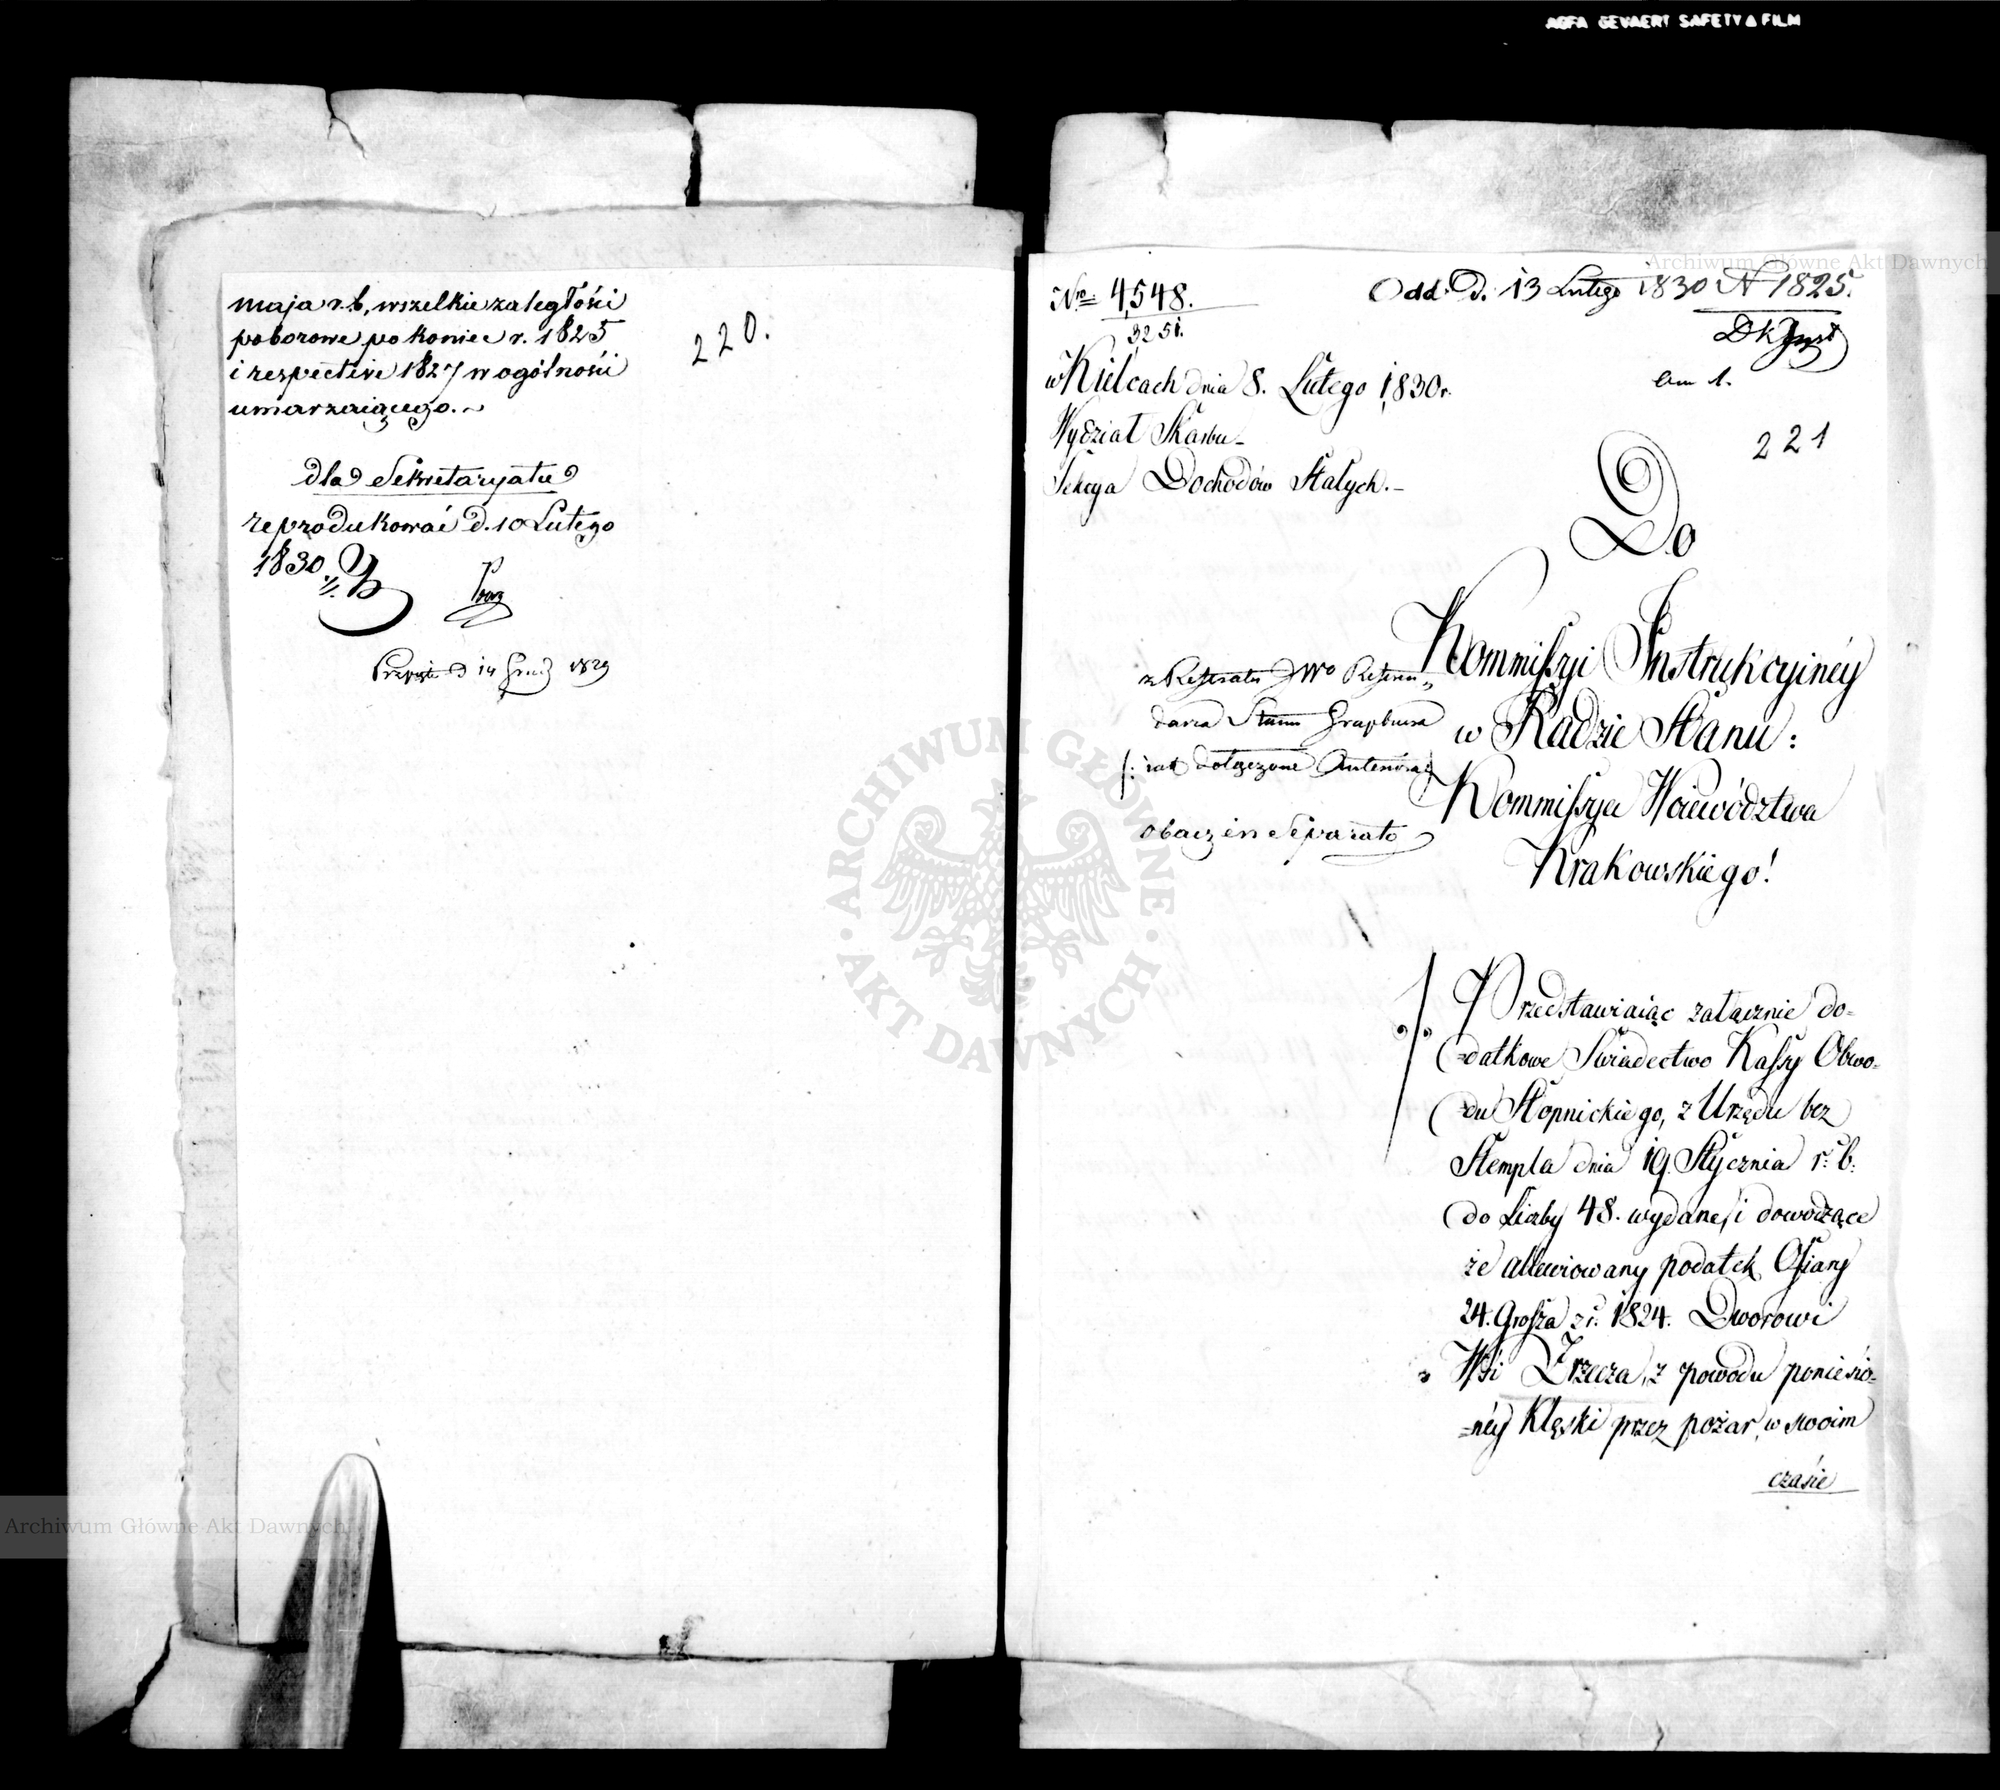 AGFA GEVAERT SAFETY FILM
maja r. b. wszelkie zaległości
poborowe po koniec r. 1825
i respective 1827 w ogólności
umarzaiącego.
220.
dla Sekretaryatu
reprodukować d. 10 Lutego
1830.
d 14 Grud 1829
Nro 4,548.
3251.
w Kielcach dnia 8. Lutego 1830 r.
Wydział Skarbu
Sekcya Dochodów Stałych.
Odd: D. 13 Lutego 1830 N 1825.
DKJnst
221
Do
Kommissyi Instrukcyinéy
w Radzie Stanu:
Kommissya Woiewództwa
Krakowskiego!
z Referatu JWo Referen
darza Stanu
dołączone
obacz in Separato
Przedstawiaiąc załącznie do-
=datkowe Swiadectwo Kassy Obwo-
=du Stopnickiego, z Urzędu bez
Stempla dnia 19. Stycznia r: b:
do Liczby 48. wydane, i dowodzące
że allewiowany podatek Ofiary
24. Grosza z r. 1824. Dworowi
Wsi Zrzecza, z powodu poniesio-
=néy Klęski przez pożar, w swoim
czasie
Archiwum Główne Akt Dawnych
Archiwum Główne Akt Dawnych
ARCHIWUM GŁÓWNE AKT DAWNYCH